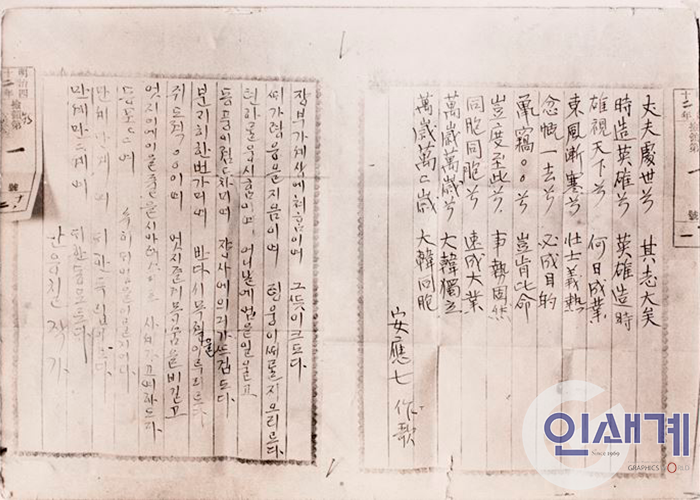 丈夫處世兮 其志大矣
時造英雄兮 英雄造時
雄視天下兮 何日成業
東風漸寒兮 壯士義熱
忿慨一去兮 必成目的
鼠竊○○兮 豈肯比命
豈度至此兮 事勢固然
同胞同胞兮 速成大業
萬歲萬歲兮 大韓獨立
萬歲萬々歲 大韓同胞
安應七 作歌
쟝부가세상에쳐흠이여 그뜻이크도다
때가영웅을지음이여 영웅이때를지으리로다
텬하를웅시흠이여 어니날에업을일울고
동풍이졈드차미여 쟝사에의긔가뜨겁도다
분개히한번가미여 반다시목젹을이루리로다
쥐도젹○○이여 엇지즐겨목숨을비길고
엇지이에이를줄을
동포동포여 속히대업을이룰지어다
만세만세여 대한독립이로다
만세만만세여 대한동포로다
안응칠 작가
明治四
十二年
一
號
인쇄계
Since 1969
GRAPHICS WORLD